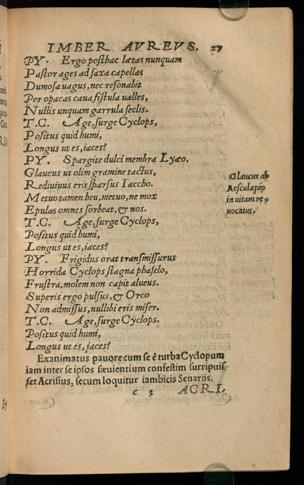 IMBER AVREVS. 27
PY. Ergo posthac lætas nunquam
Pastor ages ad saxa capellas
Dumosa uagus, nec resonabit
Per opacas caua fistula ualles,
Nullis unquam garrula seclis.
T.C. Age, surge Cyclops,
Positus quid humi,
Longus ut es, iaces?
PY. Spargite dulci membra Lyæo.
Glaucus ut olim gramine tactus,
Rediuiuus erit sparsus Iaccho.
Metuo tamen heu, metuo, ne mox
Epulas omnes sorbeat, & nos.
T.C. Age, surge Cyclops,
Positus quid humi,
Longus ut es, iaces?
Glaucus ab
Aesculapio
in uitam re-
uocatus.
PY. Frigidus orat transmissurus
Horrida Cyclops stagna phaselo,
Frustra, molem non capit alueus.
Superis ergo pulsus, & Orco
Non admissus, nullibi eris miser.
T.C. Age, surge Cyclops.
Positus quid humi,
Longus ut es, iaces?
Exanimatus pauore cum se è turba Cyclopum
iam inter se ipsos sæuientium confestim surripuis
set Acrisius, secum loquitur iambicis Senariis.
c 3 ACRI.